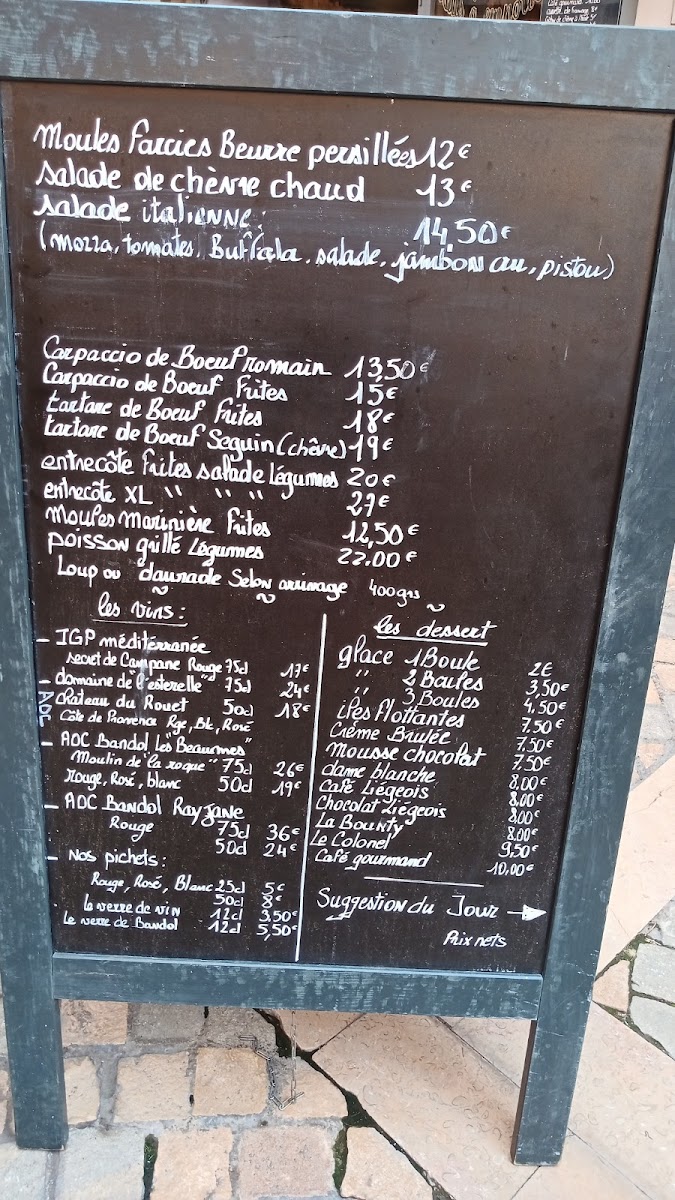 Moules farcies Beurre persillées 12€
salade de chèvre chaud 13€
salade italienne: 14,50€
(mozza, tomates, Buffala, salade, jambon cru, pistou)
Carpaccio de Boeuf romain 13,50€
Carpaccio de Boeuf Frites 15€
tartare de Boeuf Frites 18€
tartare de Boeuf Seguin (chèvre) 19€
entrecôte frites salade légumes 20€
entrecôte XL " " " 27€
Moules marinière frites 12,50€
poisson grillé Légumes 22.00€
Loup ou daurade Selon arrivage 400grs
les vins:
- IGP méditérranée
secret de Campane Rouge 75cl 17€
- domaine de "l'esterelle" 75cl 24€
AOC Chateau du Rouet 50cl 18€
Côte de Provence Rge, Blc, Rosé
- AOC Bandol Les "Beaumes"
Moulin de "la roque" 75cl 26€
Rouge, Rosé, blanc 50cl 19€
- AOC Bandol Ray Jane
Rouge 75cl 36€
50cl 24€
- Nos pichets:
Rouge, Rosé, Blanc 25cl 5€
50cl 8€
le verre de vin 12cl 3,50€
le verre de Bandol 12cl 5,50€
les dessert
glace 1 Boule 2€
" 2 Boules 3,50€
" 3 Boules 4,50€
iles Flottantes 7.50€
Crème Brulée 7.50€
mousse chocolat 7.50€
dame blanche 8,00€
Café Liégeois 8,00€
Chocolat Liégeois 8,00€
La Bounty 8.00€
Le Colonel 9,50€
Café gourmand 10,00€
Suggestion du Jour →
Prix nets